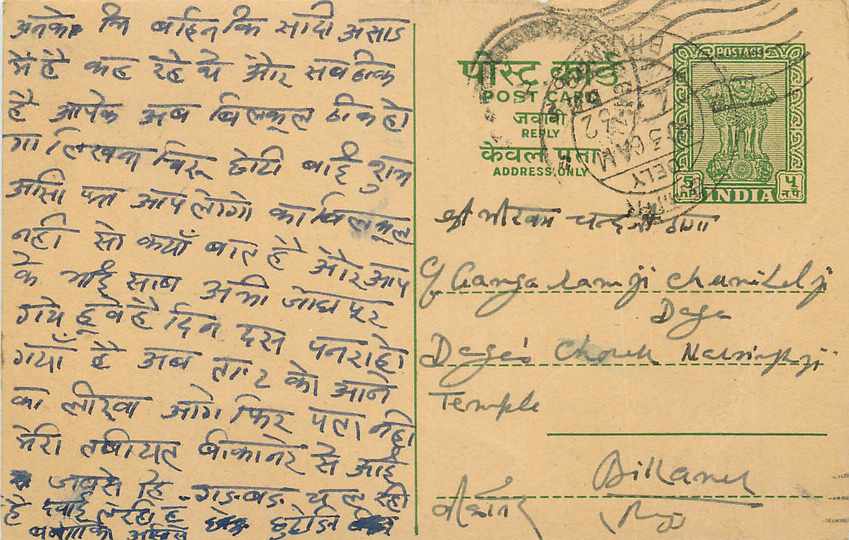 अनेक कि बहिन कि सादी असाड
में है कह रहे थे और सब ठिक
है आपके अब बिलकूल ठिक हो
गा लिखना चिरू छोटी बाई शुभ
आसी पत्र आप लोगो का बिलकूल
नही सो क्याँ बात है और आप
के भाई साब अभी जोधपूर
गये हूवे है दिन दस पनराहो
गयाँ है अब ता॰ २ को आने
का लीखा आगे फिर पता नही
मेरी तबीयत बीकानेर से आई
जबसे हि गङबङ चल रही
है दवाई ले रही हूं
पोस्ट कार्ड
POST CARD
जवाबी
REPLY
केवल पता
ADDRESS ONLY
POSTAGE
५ न.प.
INDIA
श्री भीखम चन्दजी डागा
C/ Gangaramji chunilalji
Daga
Daga's Chowk Narsinghji
Temple
Bikaner
बीकानेर
(Raj)